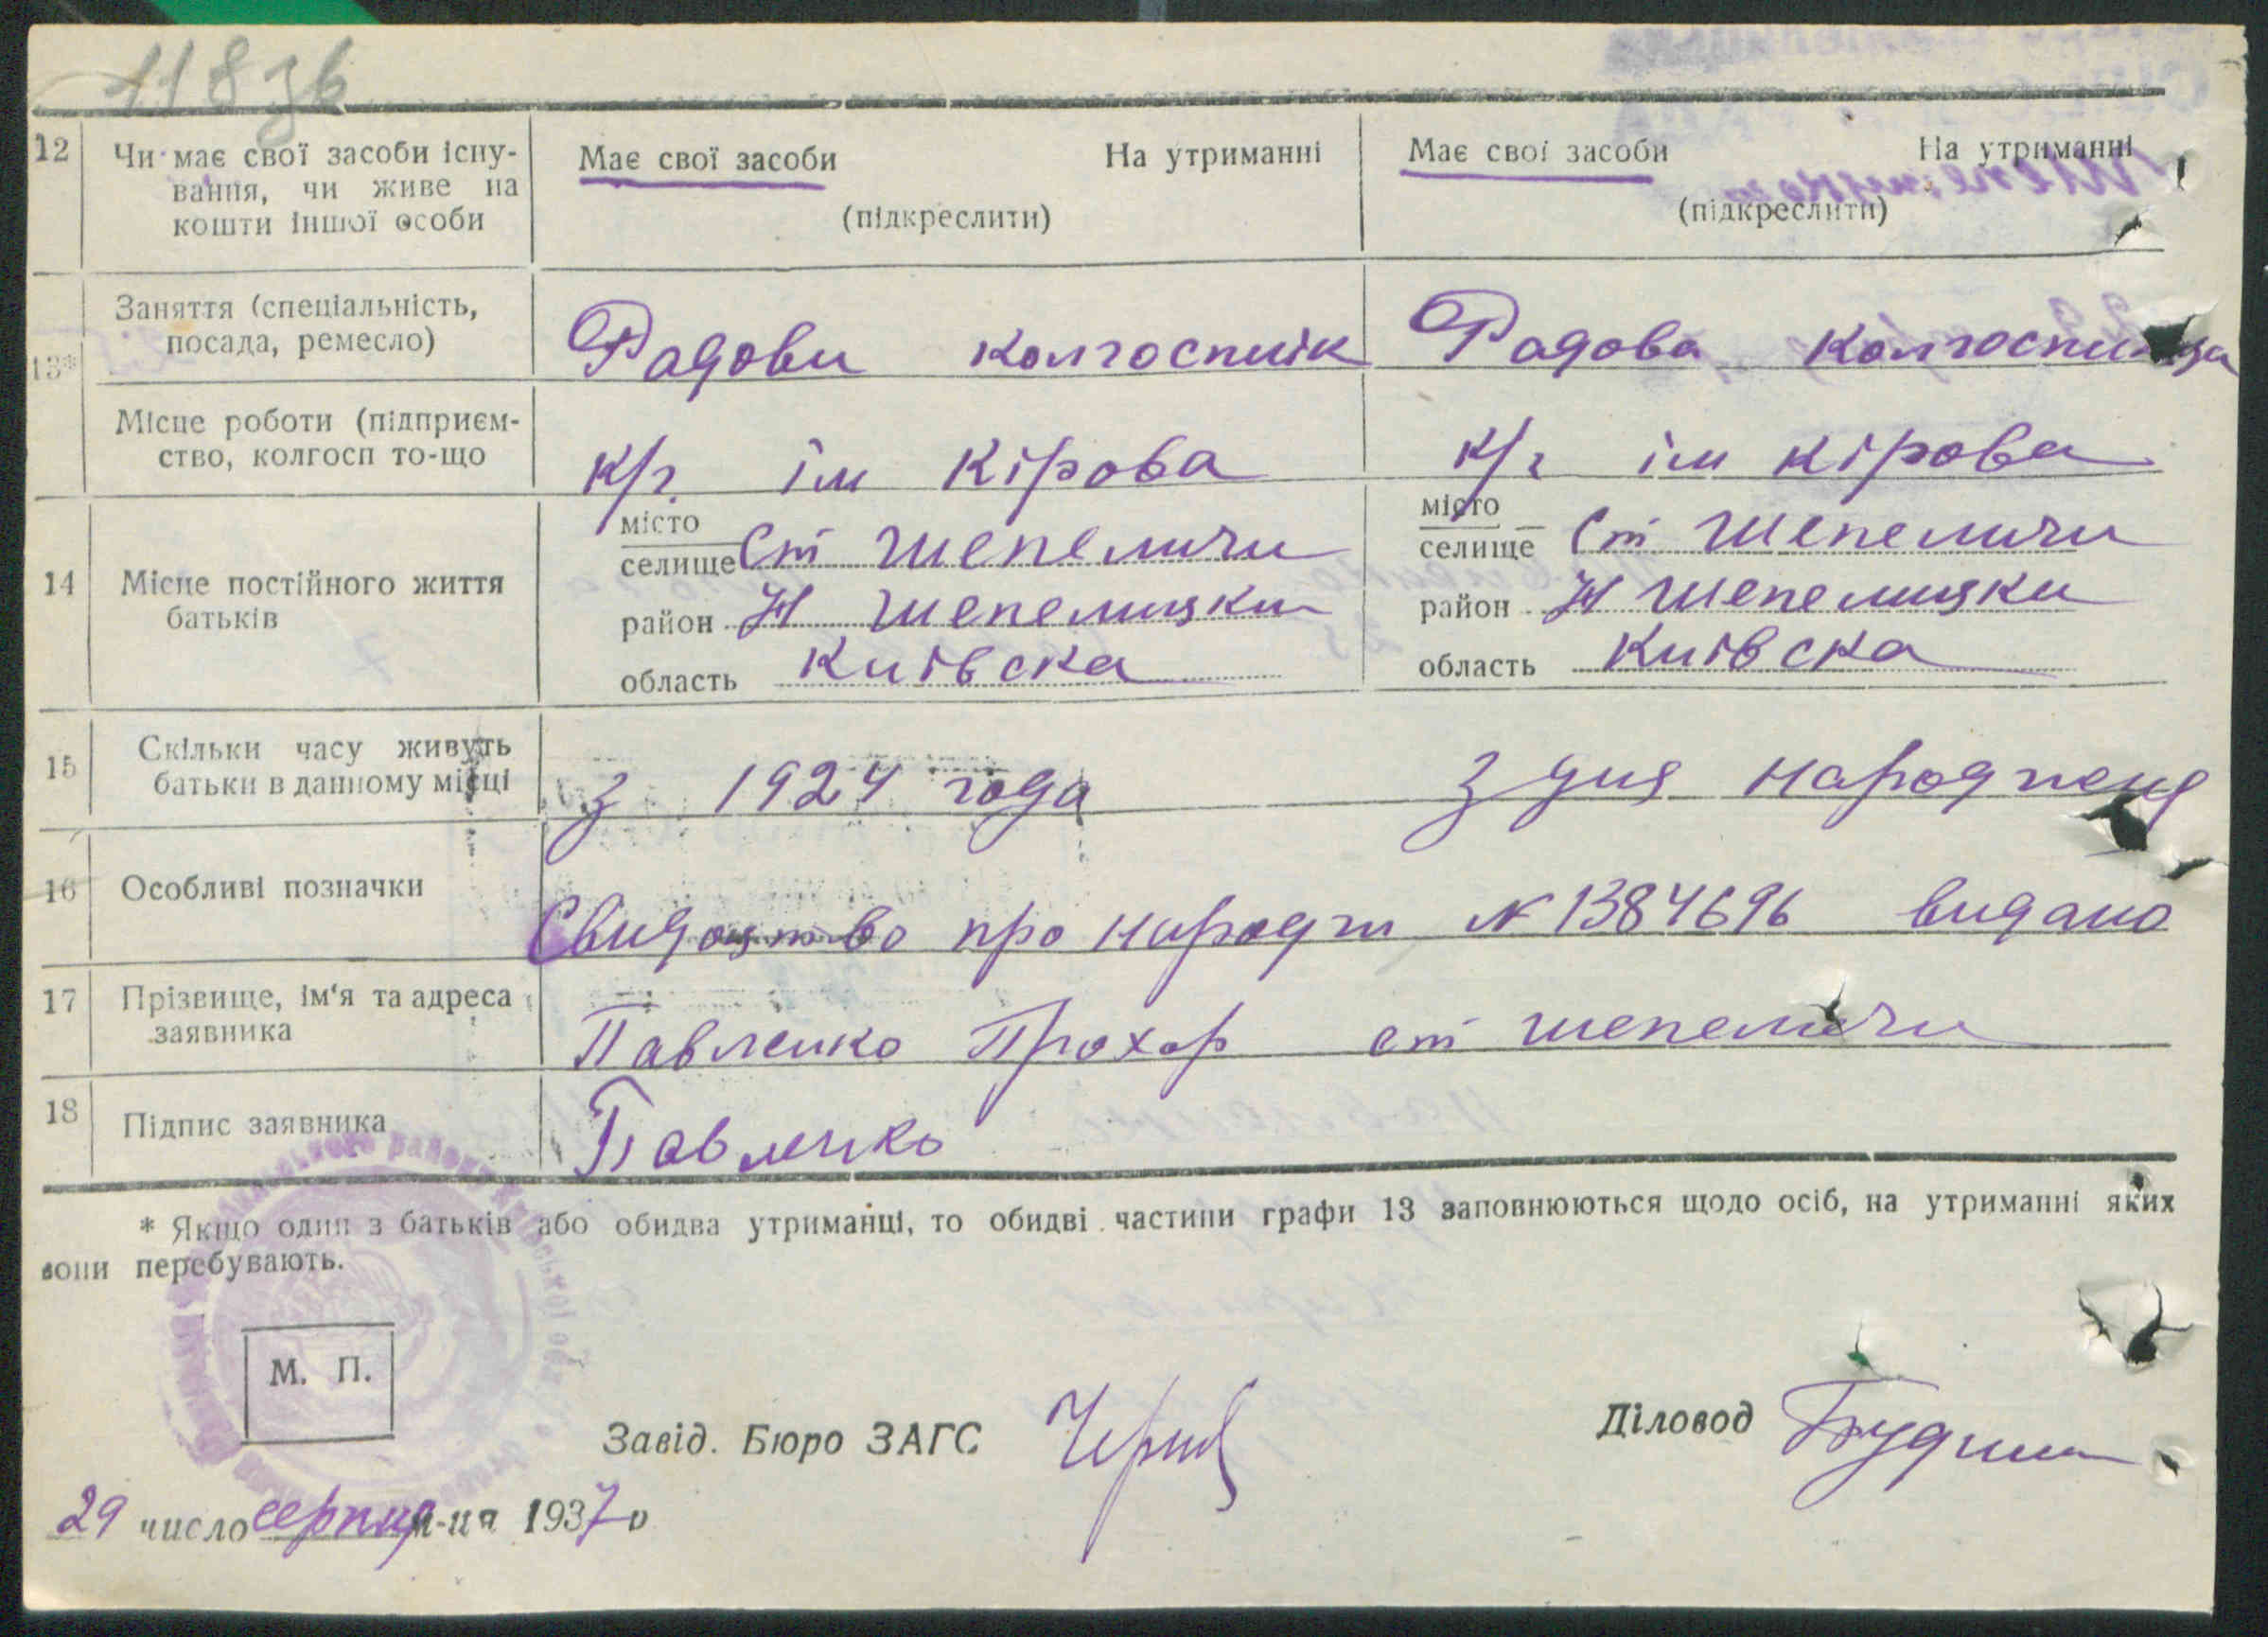 118 зв
12 Чи має свої засоби існу-
вання, чи живе на
кошти іншої особи
Має свої засоби На утриманні
(підкреслити)
Має свої засоби На утриманні
(підкреслити)
13*
Заняття (спеціальність,
посада, ремесло)
Радови колгоспнік
Радова колгоспниця
Місце роботи (підприєм-
ство, колгосп то-що
к/г. ім Кірова
к/г ім Кірова
14 Місце постійного життя
батьків
місто
селище Ст Шепеличи
район Н Шепелицки
область Киівска
місто
селище Ст Шепеличи
район Н Шепелицки
область Киівска
15 Скільки часу живуть
батьки в данному місці
з 1924 года
з дня народженя
16 Особливі позначки
Свидоцтво про народж N 1384696 видано
17 Прізвище, ім'я та адреса
заявника
Павленко Прохор ст шепеличи
18 Підпис заявника
Павленко
* Якщо один з батьків або обидва утриманці, то обидві частини графи 13 заповнюються щодо осіб, на утриманні яких
вони перебувають.
М. П.
Завід. Бюро ЗАГС
Діловод
29 число серпня м-ця 1937 р